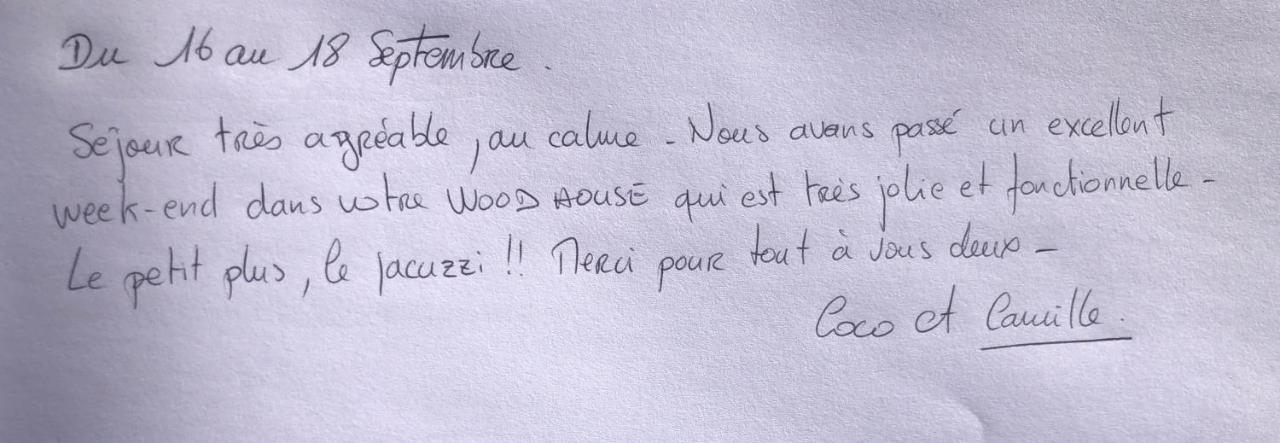 Du 16 au 18 Septembre.
Séjour très agréable, au calme - Nous avons passé un excellent
week-end dans votre WOOD HOUSE qui est très jolie et fonctionnelle -
Le petit plus, le jacuzzi !! Merci pour tout à vous deux -
Coco et Camille.